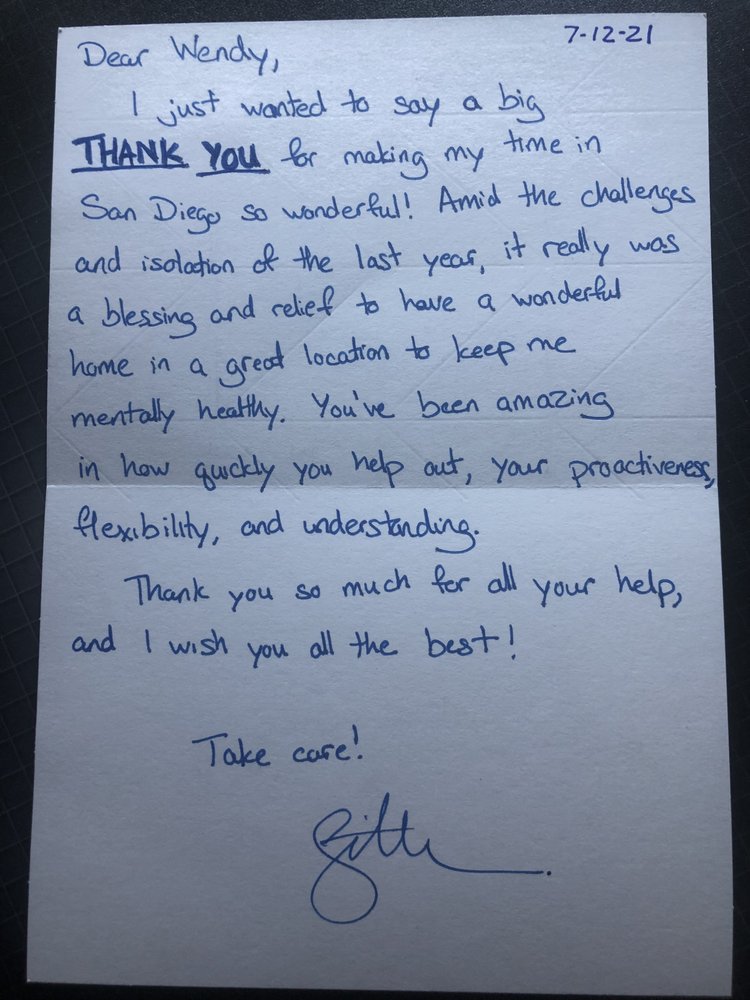 7-12-21
Dear Wendy,
I just wanted to say a big
THANK YOU for making my time in
San Diego so wonderful! Amid the challenges
and isolation of the last year, it really was
a blessing and relief to have a wonderful
home in a great location to keep me
mentally healthy. You've been amazing
in how quickly you help out, your proactiveness,
flexibility, and understanding.
Thank you so much for all your help,
and I wish you all the best!
Take care!